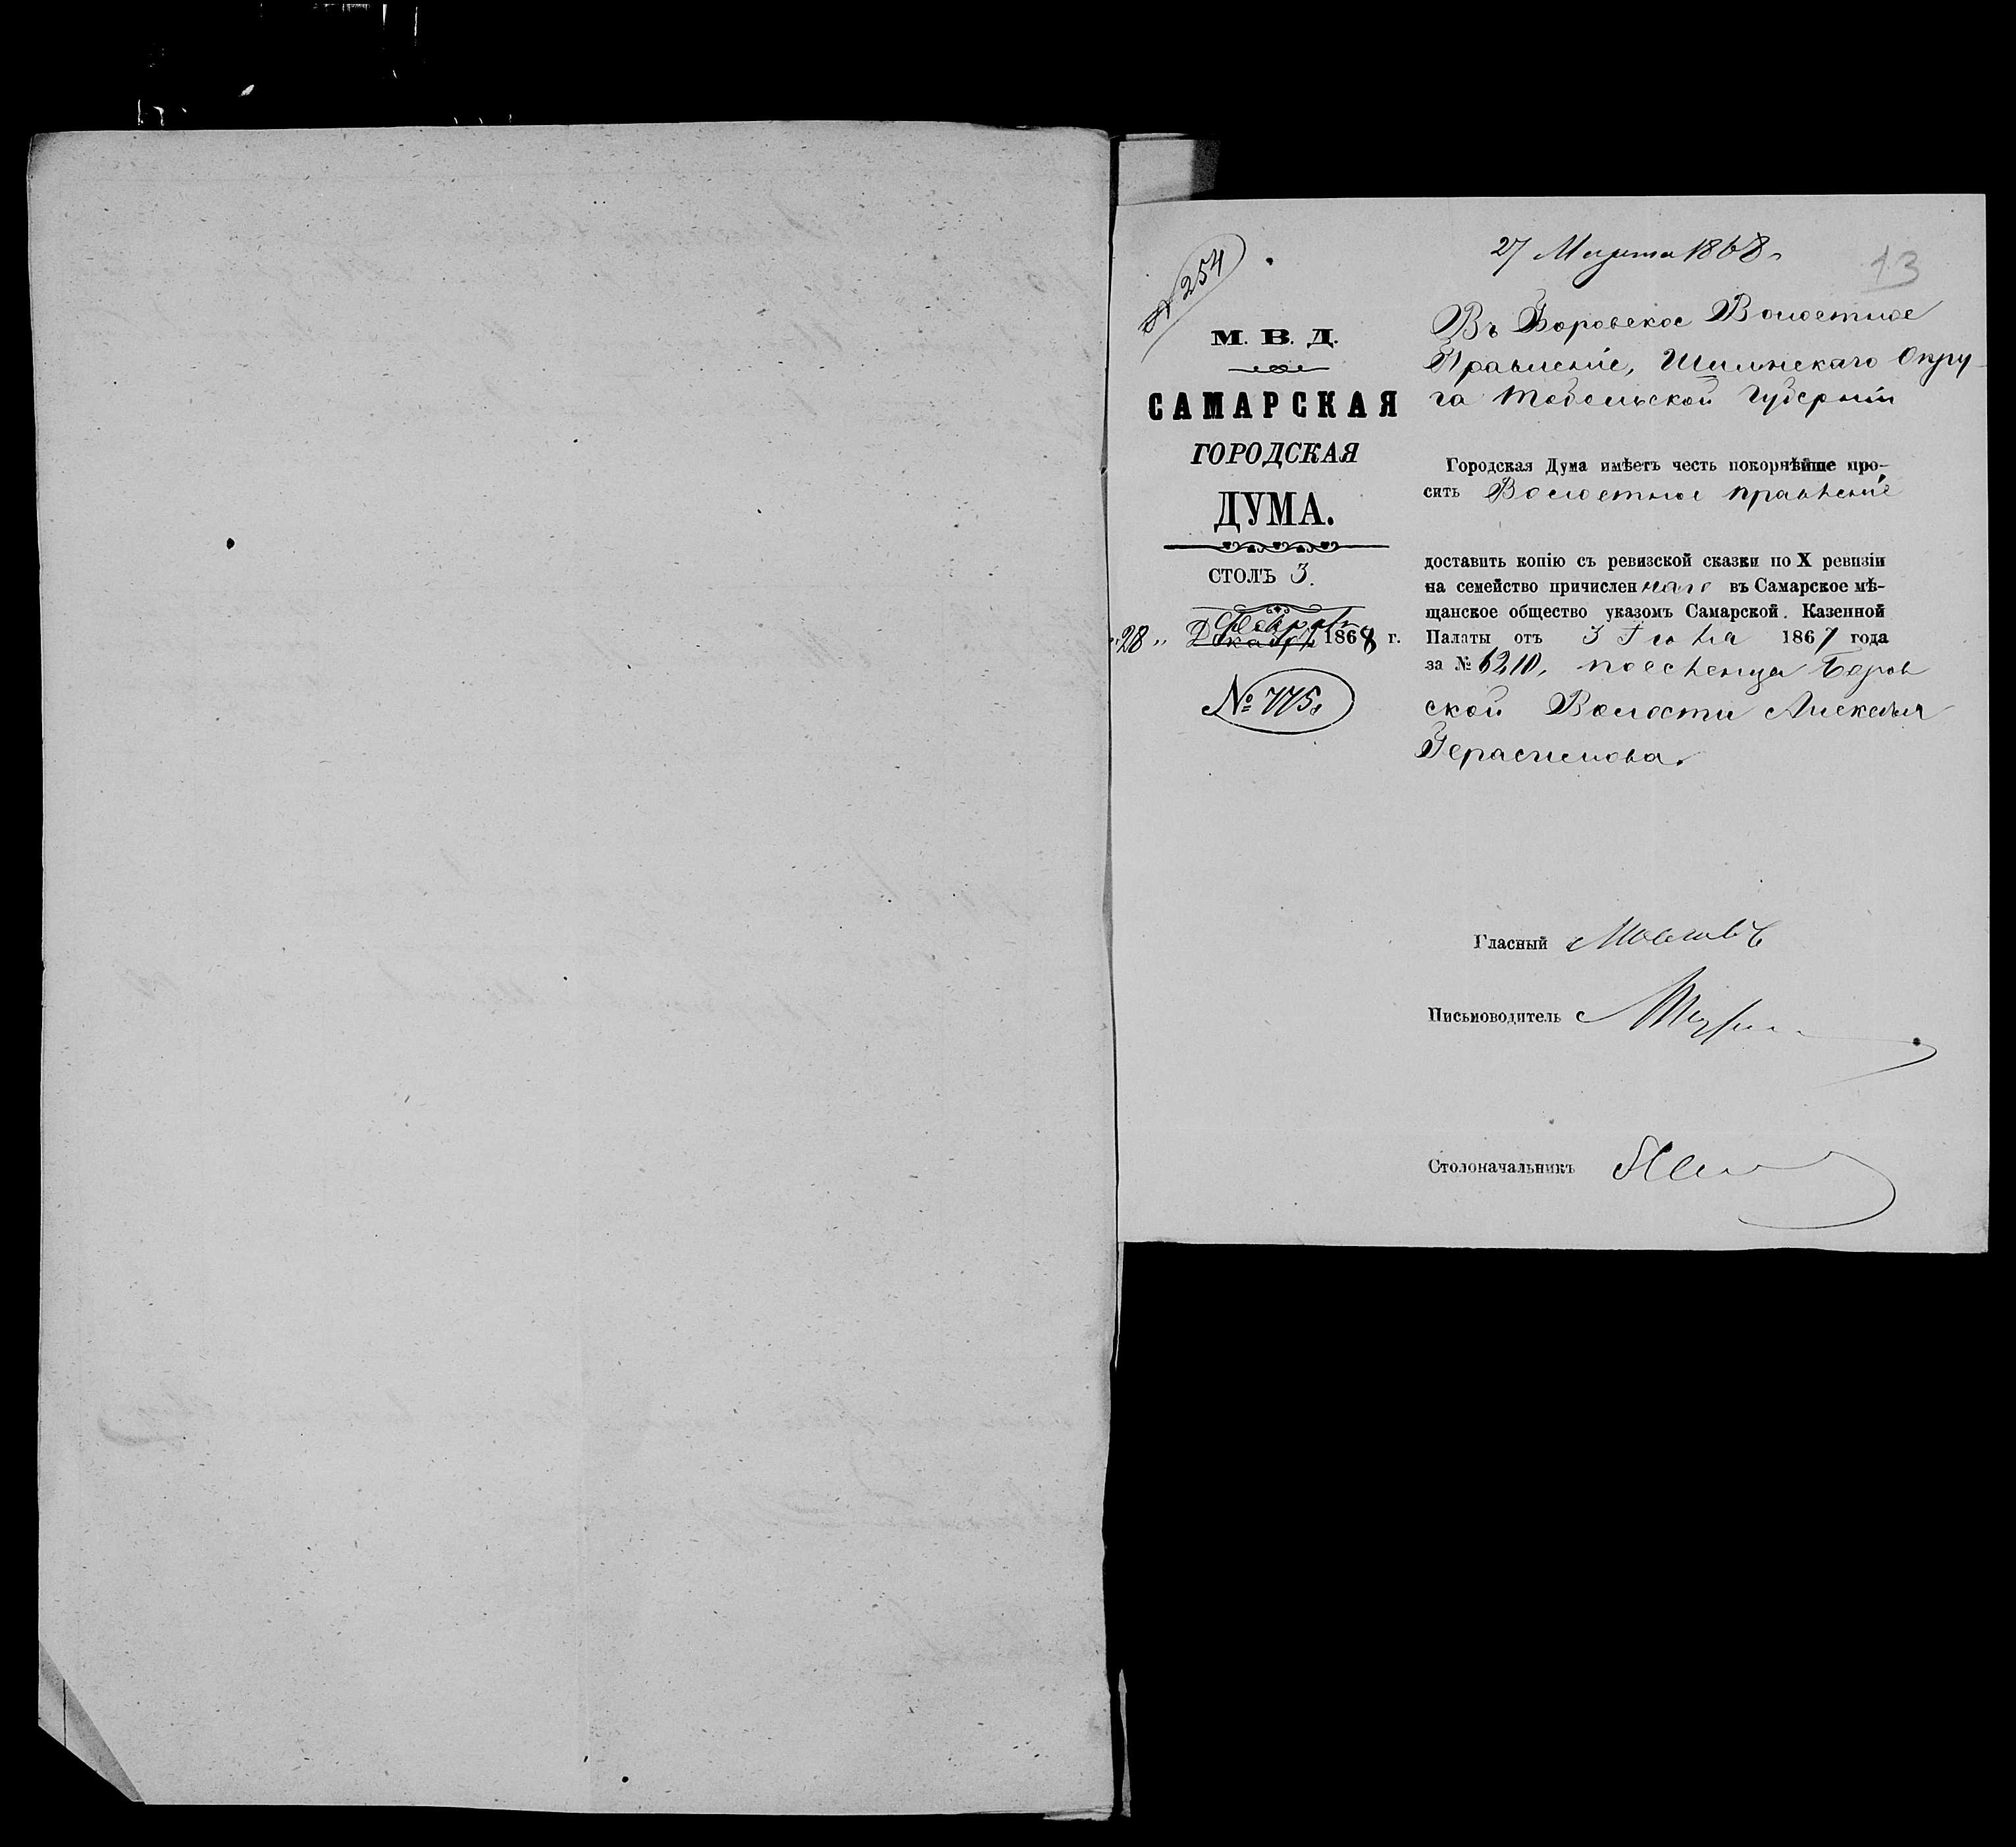 № 254
27 Марта 1868 г
13
М. В. Д.
САМАРСКАЯ
ГОРОДСКАЯ
ДУМА.
СТОЛЪ 3.
28 „ Декабря Февраля 1868 г.
№ 775.
Въ Боровское Волостное
Правленіе, Ишимскаго Окру-
га Тобольской Губерніи
Городская Дума имѣетъ честь покорнѣйше про-
сить Волостное правленіе
доставить копію съ ревизской сказки по X ревизіи
на семейство причисленнаго въ Самарское мѣ-
щанское общество указомъ Самарской. Казенной
Палаты отъ 3 Іюня 1867 года
за № 6210, поселенца Боров
ской Волости Алексѣя
Герасимова.
Гласный
Письмоводитель
Столоначальникъ